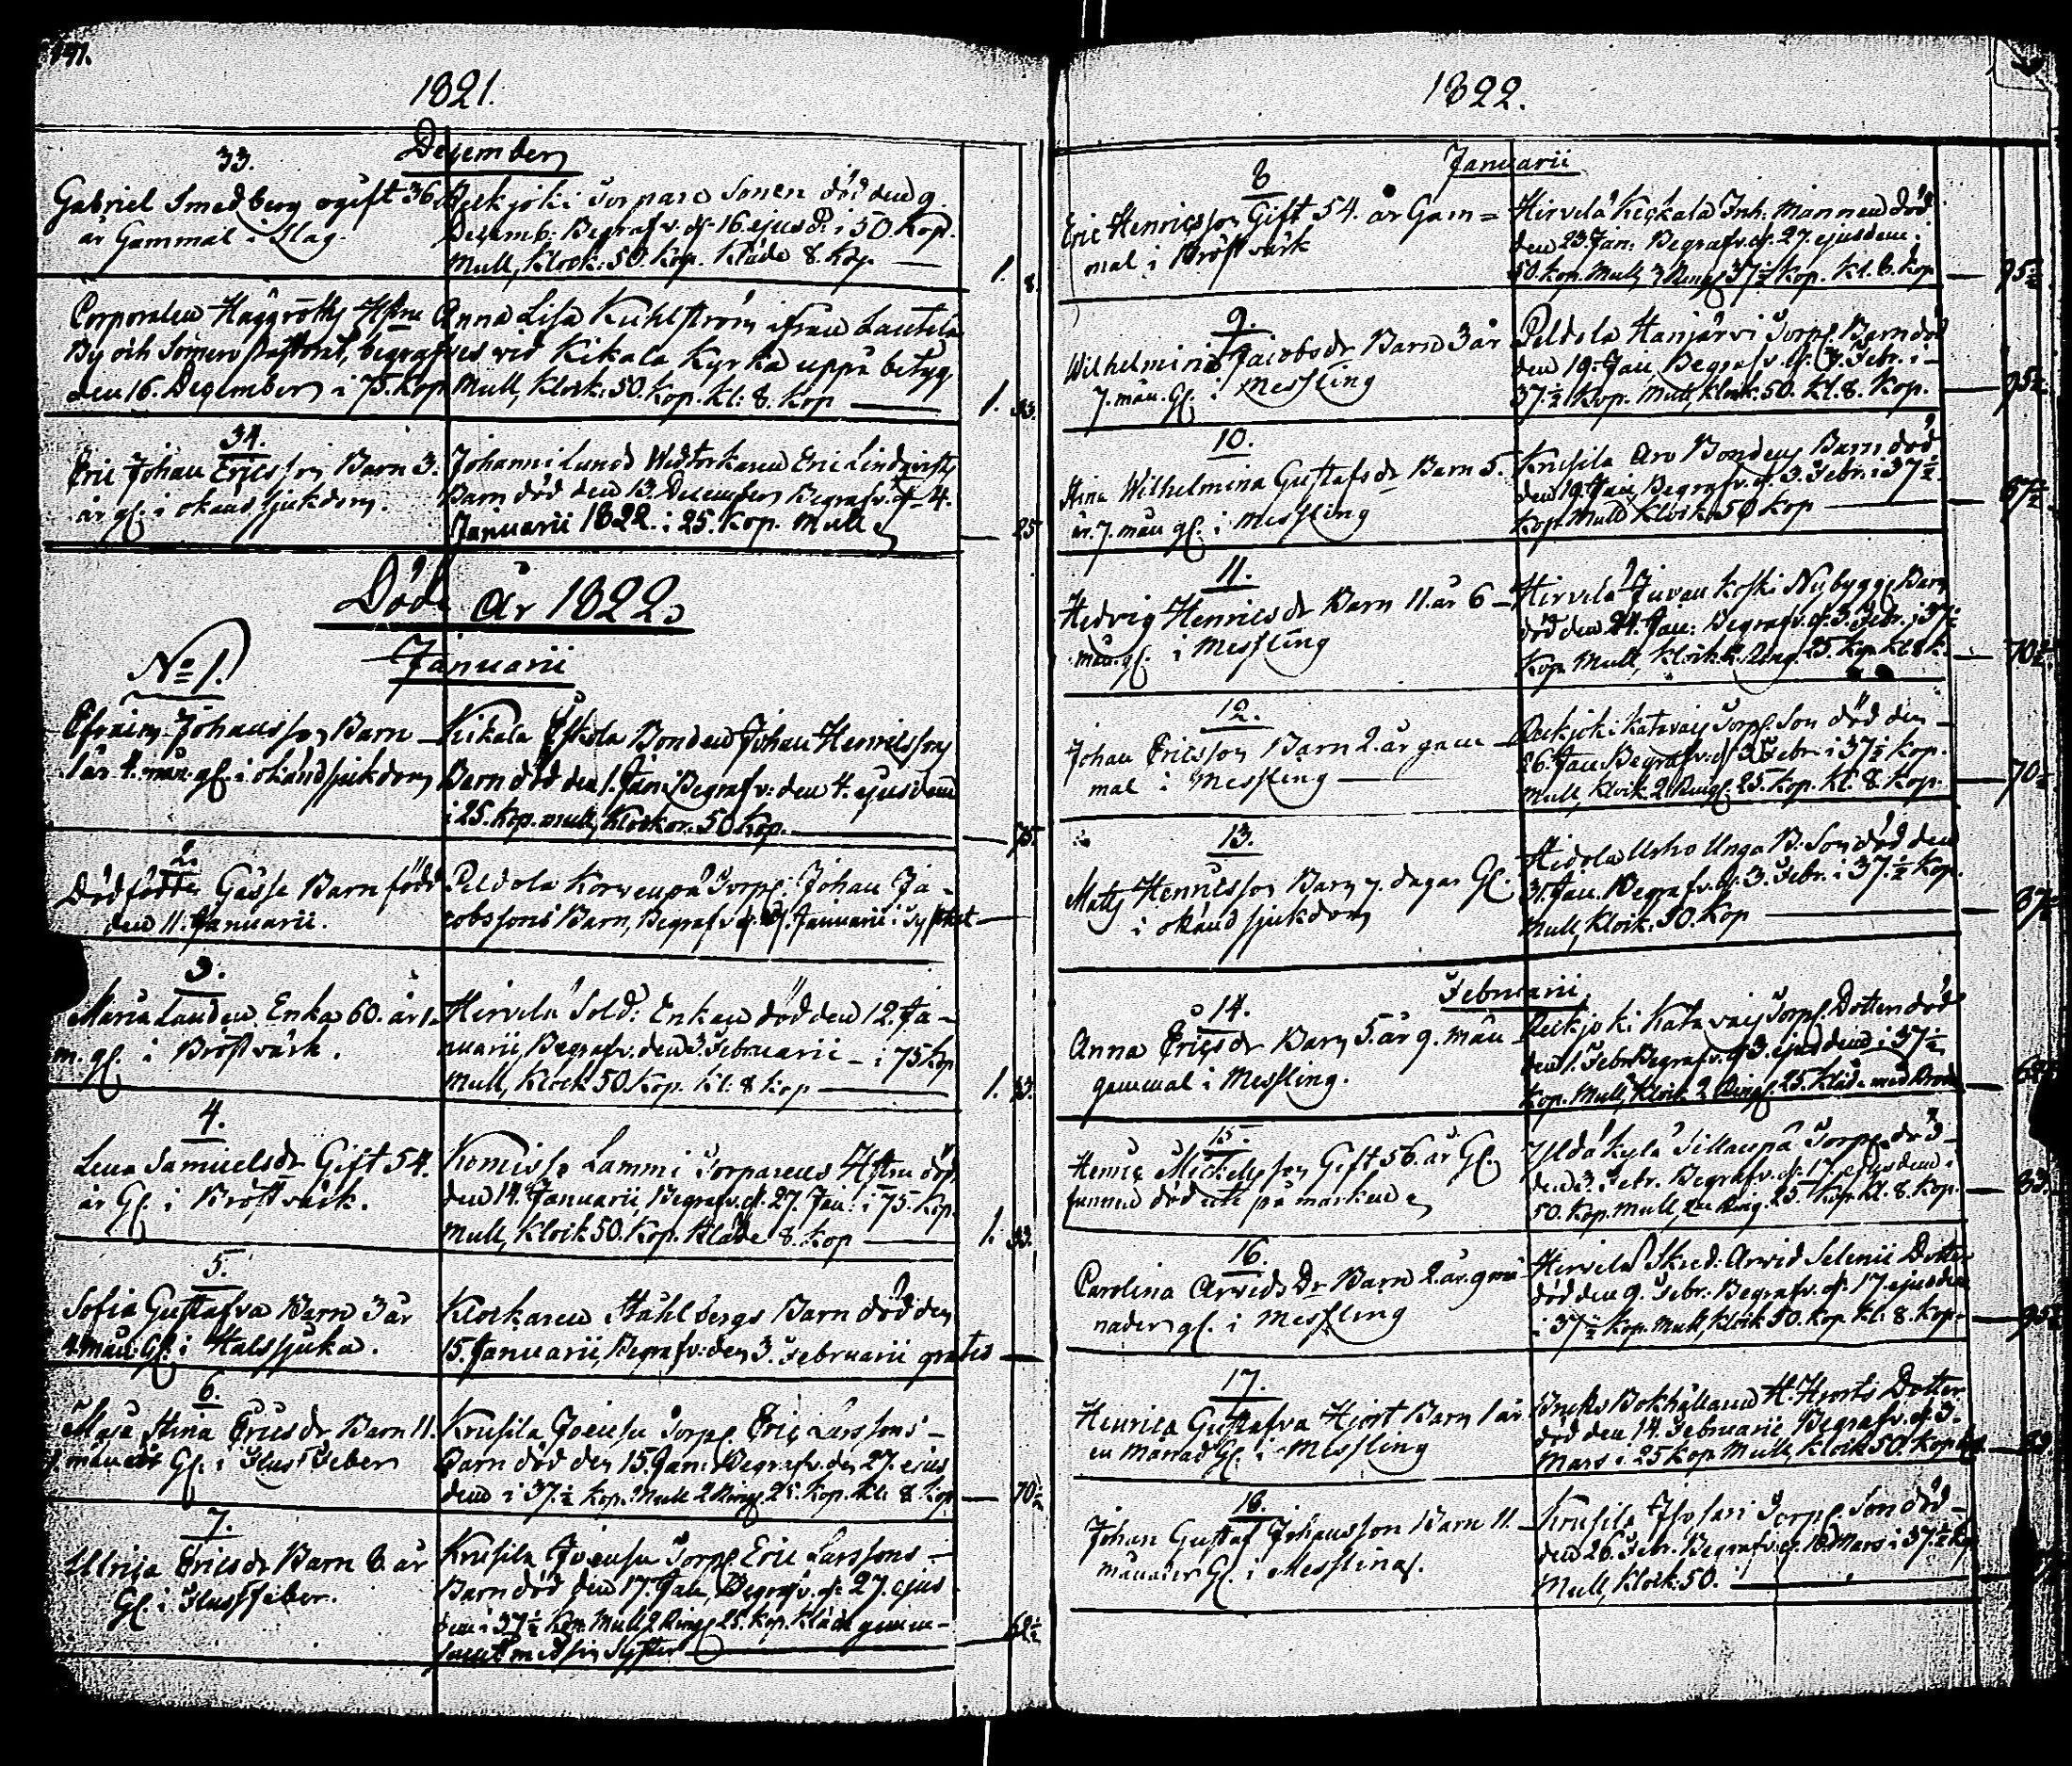 1821.
Decembr
33.
Gabriel Smedberg ogift 36
år Gammal i Slag.
Rekjoki Torpare Sonen död den 9.
Decemb: Begrafv. d. 16. ejusd: i 50 Kop.
Mull, Klock: 50. Kop. Kläde 8. Kop
1. 8.
Corporalen Häggroths Hstru Anna Lisa Kuhlström ifrån Lautela
By och Somero pastorat, begrafves vid Kikala Kyrka uppå betyg
den 16. December i 75. Kop Mull, Klock: 50. Kop. Kl: 8. Kop
1. 33.
34.
Eric Johan Ericsson Barn 3.
år gl. i okänd sjukdom.
Johannislund Eric Lindqvists
Barn död den 13. December Begrafv. d. 4.
Januarii 1822. i 25. Kop. Mull
25
Döde År 1822
Januarii
No 1.
Efraim Johansson Barn
1 år 4. mån. gl. i okänd sjukdom
Kikala Eskola Bonden Johan Henricsson
Barn död den 1. Jan: Begrafv: den 4. ejusdem
i 25. Kop. mull, Klockor. 50 Kop.
75.
2.
Dödfödde Gosse Barn född
den 11. Januarii.
Peldola Korvenpä Torp: Johan Ja-
cobssons Barn, Begrafv. d. Januarii i
3.
Maria Landen Enka 60. år 1.
m. gl. i Bröstvärk.
Hirvelä Sold: Enkan död den 12. Ja-
nuarii, Begrafv. den 3 Februarii – i 75 Kop
Mull, Klock 50 Kop. Kl: 8 Kop
1. 33.
4.
Lena Samuelsdr Gift 54.
år Gl. i Bröstvärk.
Komisso Lammi Torparens Hstru död
den 14. Januarii, Begrafv. d. 27. Jan: i 75. Kop.
Mull, Klock 50. Kop. Kläde 8. Kop
1. 33.
5.
Sofia Gustafva Barn 3 år
4. mån. Gl. i Halssjuka.
Klockaren Ståhlbergs Barn död den
15. Januarii, Begrafv: den 3. Februarii gratis
6.
Maja Stina Ericsdr Barn 11.
Gl. i Feber
Krusila Torp Eric Larssons
Barn död den 15. Jan: Begrafv. den 27. ejus
dem i 37.½ Kop. Mull 2 Ring 25. Kop. Kl: 8 Kop
70½
7.
Ulrica Ericsdr Barn 8. år
Gl. i feber.
Krusila Torp Eric Larssons
Barn död den 17. Jan, Begrafv. d. 27. ejus
dem i 37½ Kop. Mull 2 Ring 25. Kop. Kläde gemen-
samt med sin Syster
62½
1822.
Januarii
8
Eric Henricsson Gift 54. år Gam=
mal i Bröstvärk
Hirvelä Keckala Inh. Mannen död
den 23. Jan: Begrafv. d. 27. ejusdem i
50. Kop. Mull, 3 Ring 37½ Kop. Kl. 8. Kop
95½
9.
Wilhelmina Jacobsdr Barn 3 år
7. mån. Gl. i Messling
Peldola Hanjärvi Torp Barn död
den 19. Jan, Begrafv. d. 3. Febr. i
37.½ Kop. Mull, Klock. 50. Kl. 8. Kop.
95½
10.
Stina Wilhelmina Gustafsdr Barn 5.
år. 7. mån gl. i Messling
Krusila Aro Bondens Barn död
den 19. Jan, Begrafv. d. 3. Febr. i 37½
Kop. Mull Klock. 50 Kop
87½
11.
Hedvig Henricsdr Barn 11. år 6
mån. gl. i Messling
Hirvelä Juvankoski Nybygg Barn
död den 24. Jan: Begrafv. d. 3. Febr. i 37½
Kop. Mull, Klock 2. Ring. 25. Kop. Kl 8 k.
70½
12.
Johan Ericsson Barn 2. år gam-
mal i Messling
Rekjoki Katvais Torp Son död den
26. Jan Begrafv: d. 3 Febr. i 37½ Kop.
Mull, Klock 2 Ring. 25. Kop. Kl. 8. Kop.
70½
13.
Matts Henricsson Barn 7. dagar Gl.
i okänd sjukdom
Hidola Uusho Unga B. Son död den
31. Jan. Begrafv. d. 3. Febr. i 37.½ Kop.
Mull, Klock: 50. Kop
87½
Februarii
14.
Anna Ericsdr Barn 5. år 9. mån
gammal i Messling.
Rekjoki Katvais Torp. Dotter död
den 1. Febr Begrafv. d. 3. ejusdem i 37½
Kop. Mull, Klock 2 Ring. 25. Kläde med Brodr
62½
15.
Henric Mickelsson Gift 56. år Gl.
funnen död ute på marken
Yldäkylä Sillanpä Torp död
den 3. Febr. Begrafv. d. 17. ejusdem i
50. Kop. Mull, 2 Ring. 25 Kop. Kl. 8. Kop.
83.
16.
Carolina Arvids Dr Barn 2. år. 9 må-
nader gl. i Messling
Hirvelä Skred: Arvid Selenii Dotter
död den 9. Febr. Begrafv. d. 17. ejusdem
i 37½ Kop. Mull, Klock 50. Kop. Kl: 8. Kop.
95½
17.
Henrica Gustafva Hjort Barn 1 år
en månad Gl. i Messling
Bruks Bokhållaren H. Hjorts Dotter
död den 14. Februarii Begrafv. d. 3.
Mars i 25 Kop Mull, Klock 50. Kop
18.
Johan Gustaf Johansson Barn 11.
månader Gl. i Messling.
Krusila Isosari Torp. Son död
den 26. Febr. Begrafv. d. 10. Mars i 37.½ Kop
Mull, Klock: 50.